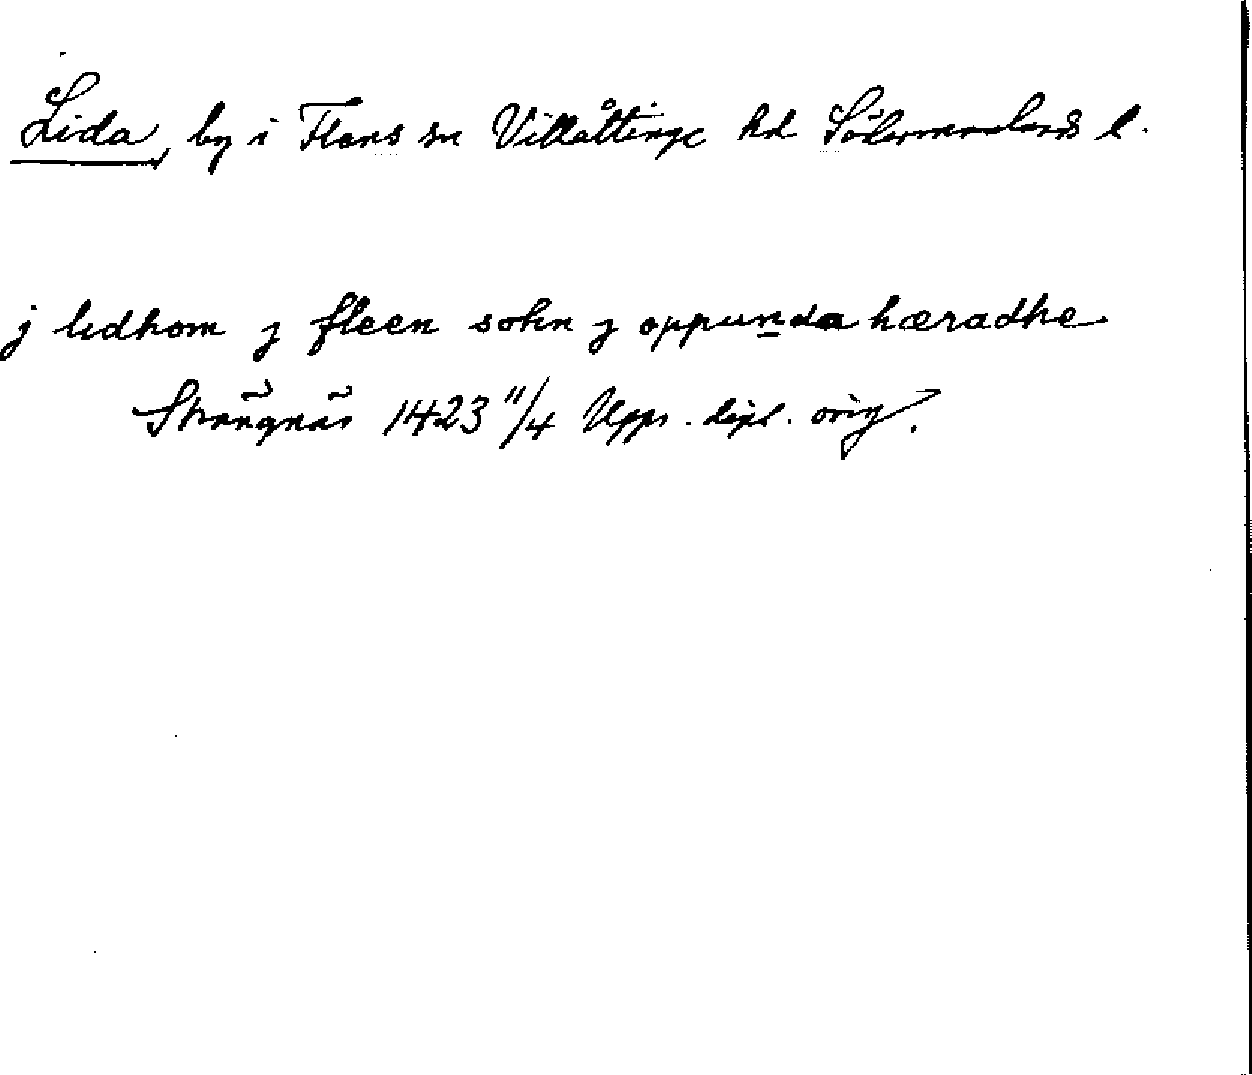 Lida, by i Flens sn Villåttinge hd Södermanlands l.
j lidhom j fleen sokn j oppunda hæradhe
Strängnäs 1423 11/4 Upps. dipl. orig.